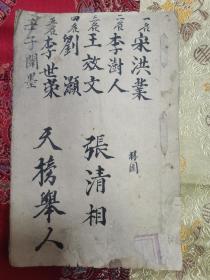 一名宋洪業
二名李澍人
三名王效文
四名劉灝
五名李世荣
壬子闈墨
張清相
天榜舉人